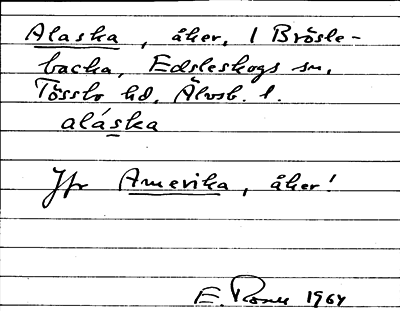 Alaska, åker, 1 Brösle-
backa, Edsleskogs sn,
Tössbo hd, Älvsb. l.
aláska
Jfr Amerika, åker!
E. Rosell 1964